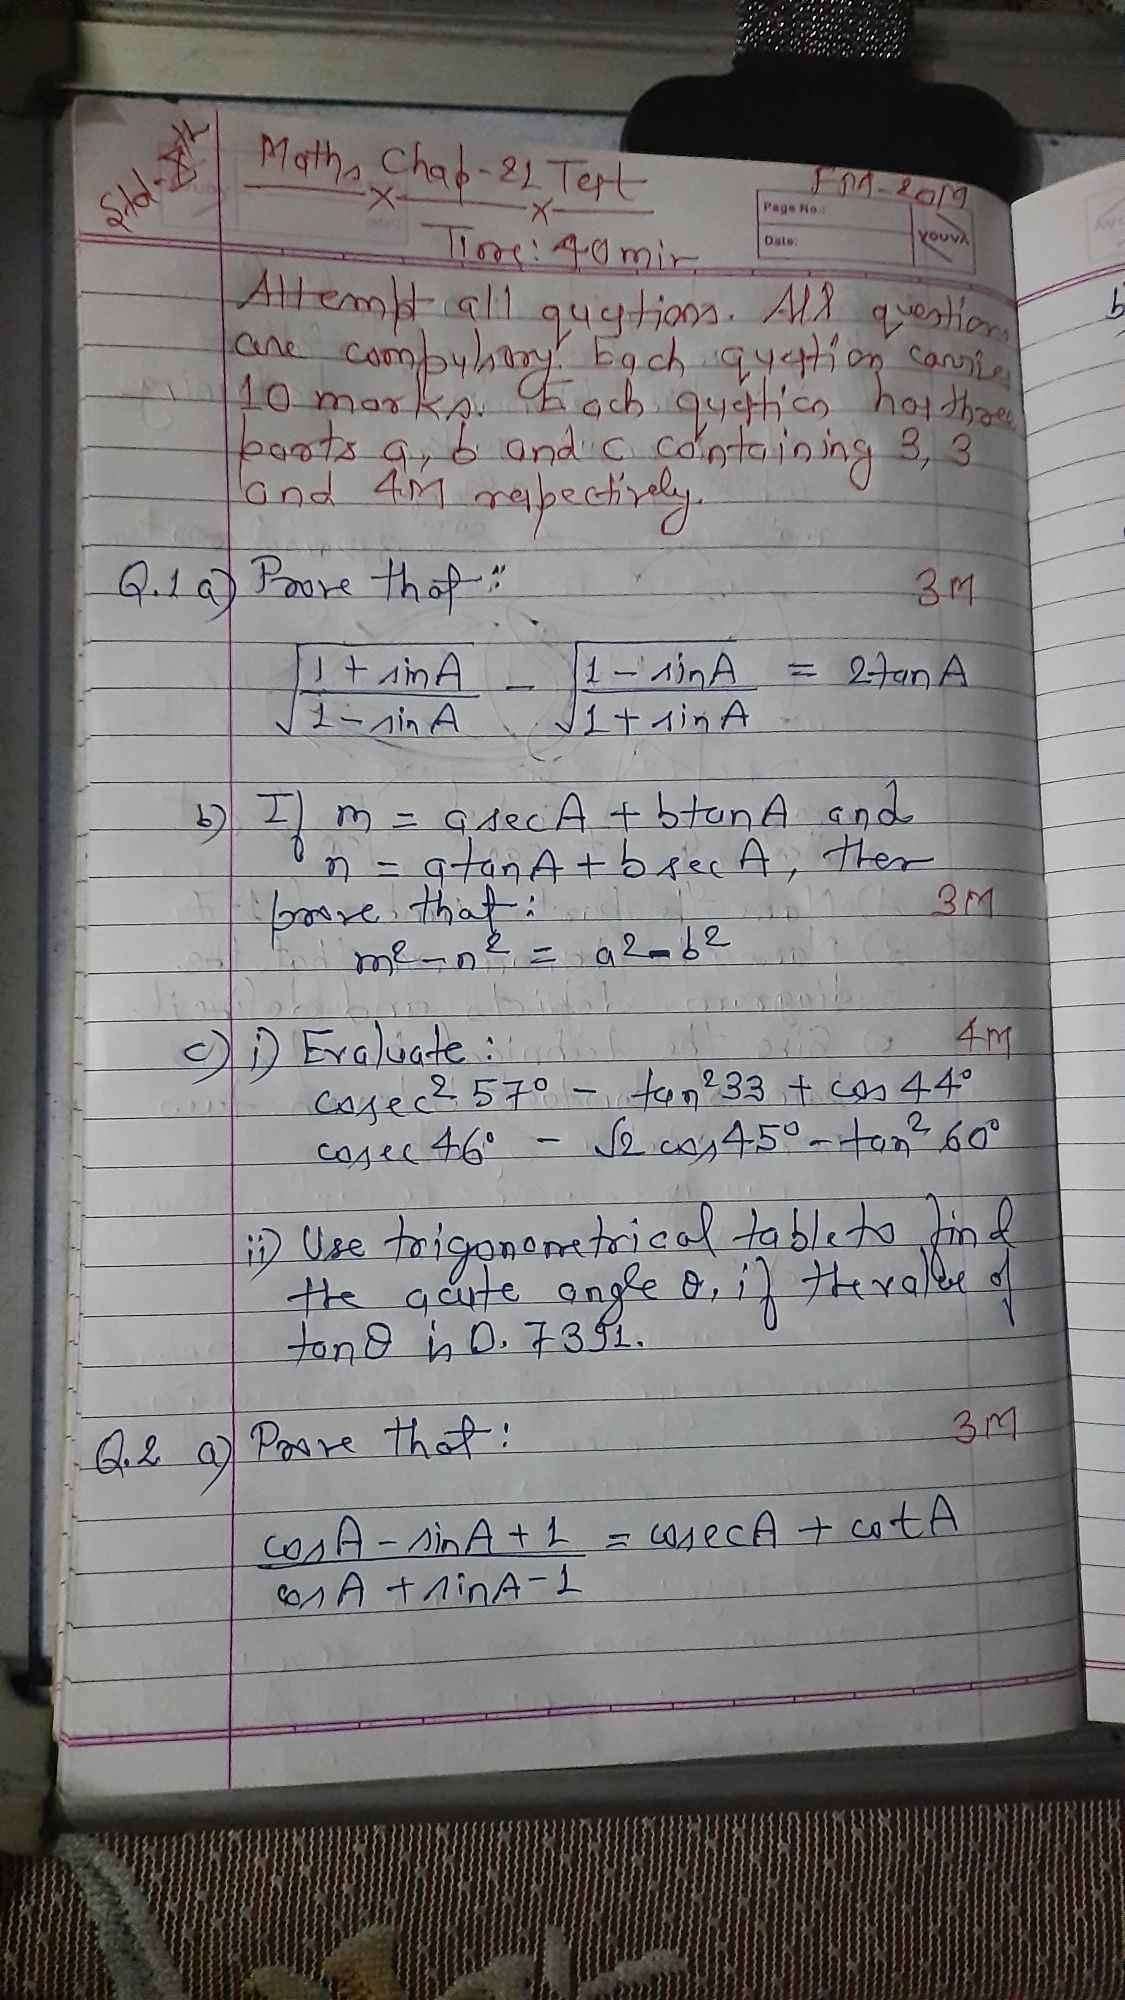 Std-Xth
Maths Chap-21 Test
FM-20M
Page No.:
Date:
YOUVA
Time: 40 min
Attempt all questions. All questions
are compulsory. Each question carries
10 marks. Each question has three
parts a, b and c containing 3, 3
and 4M respectively.
Q.1 a) Prove that: 3M
√(1 + sinA / 1 - sinA) - √(1 - sinA / 1 + sinA) = 2tanA
b) If m = a secA + b tanA and
n = a tanA + b sec A, then
prove that: 3M
m² - n² = a² - b²
c) i) Evaluate: 4M
cosec² 57° - tan² 33 + cos 44°
cosec 46° - √2 cos 45° - tan² 60°
ii) Use trigonometrical table to find
the acute angle θ, if the value of
tanθ is 0.7391.
Q.2 a) Prove that: 3M
cosA - sinA + 1 = cosecA + cotA
cosA + sinA - 1
b